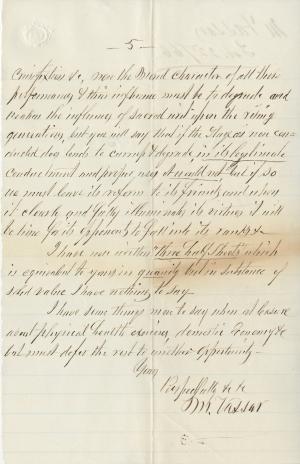 - 5 -
&c, now the Moral character of all these
performances & their influence must be to degrade and
weaken the influence of sacred art upon the rising
generation, but you will say that if the Stage as now con-
ducted does tends to corrupt & degrade in its legitimate
conducement and proper uses it would not but if so
we must leave its reform to its friends and when
it clearly and fully illuminates its virtues it will
be time for its opponents to fall into its ranks &
I have now written three half Sheets which
is equivalent to yours in quantity but in substance of
solid value I have nothing to say -
I have some things more to say when at leasure
about physical health exercises, domestic Economy &c
but must defer the rest to another opportunity -
Yours
Respectfully &c &c
M. Vassar